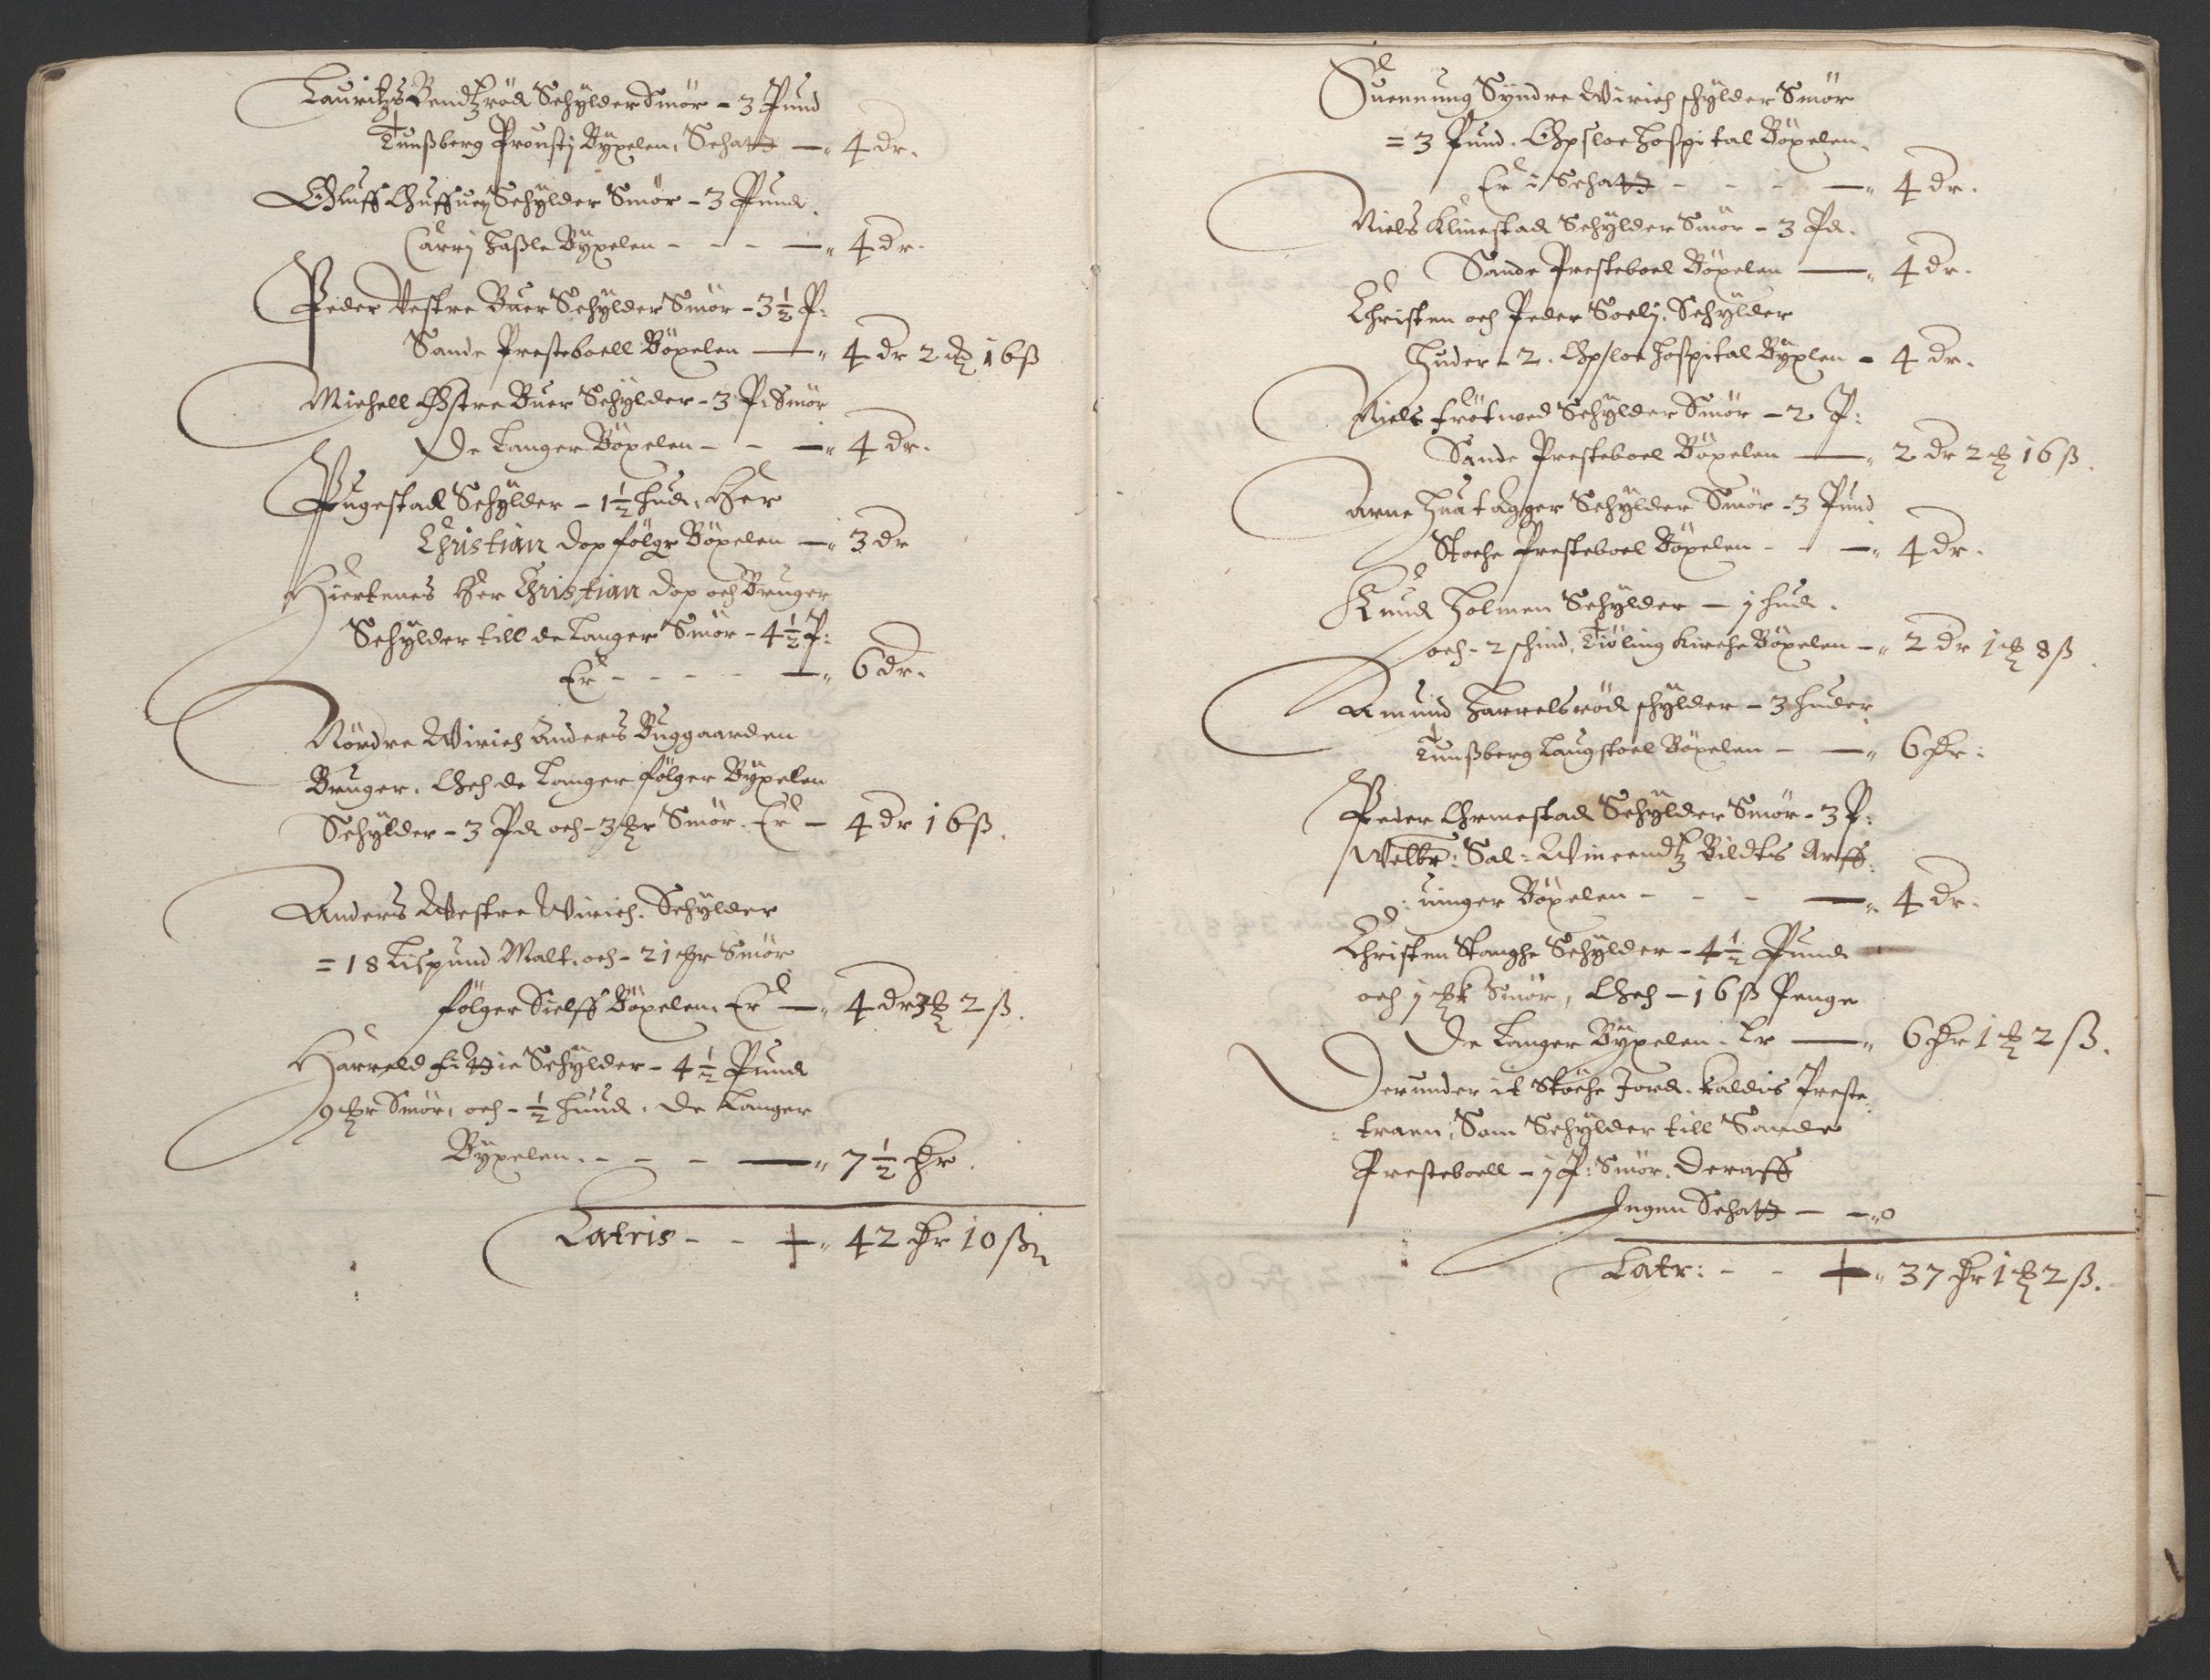 Lauritzs Bendtzrød Schylder Smör - 3 Pund
Tunßberg Prousti Byxelen, Schatt — 4 dr.
Oluff Huffuen Schylder Smör - 3 Pund.
Carri Haßle Byxelen - - - — 4 dr.
Peder Vestre Buer Schylder Smör - 3½ P:
Sande Presteboell Böxelen — 4 dr 2 ₰ 16 ß
Michell Østre Buer Schylder - 3 P: Smör
De Langer Böxelen - - — 4 dr.
Pugestad Schylder - 1½ hud, Her
Christian Dop følgr Böxelen — 3 dr
Hiertenes Her Christian Dop och Bruger
Schylder till de Langer Smör - 4½ P:
Er - - - - — 6 dr.
Nördre Wirich Anders Buggaarden
Bruger. Och de Langer følger Byxelen
Schylder - 3 Pd och - 3 ₰r Smör. Er — 4 dr 16 ß.
Anders Westre Wirich. Schylder
= 18 Lispund Malt. och - 21 ₰r Smör
følger Sielff Böxelen, Er — 4 dr 3 ₰ 2 ß.
Harreld Fittie Schylder - 4½ Pund
9 ₰r Smör, och - ½ huud. De Langer
Byxelen. - - - — 7½ dr.
Latris - - — 42 dr 10 ß
Suennung Syndre Wirich schylder Smör
= 3 Pund. Opsloe Hospital Böxelen.
Er i Schatt - - - — 4 dr.
Niels Klinestad Schylder Smör - 3 Pd.
Sande Presteboel Böxelen — 4 dr.
Christen och Peder Soelj. Schylder
Huder - 2. Opsloe Hospital Byxlen - 4 dr.
Niels Frötued Schylder Smör - 2 P:
Sande Presteboel Böxelen — 2 dr 2 ₰ 16 ß.
Arne Huatagger Schylder Smör - 3 Pund
Stoche Presteboel Böxelen - - — 4 dr.
Knud Holmen Schylder — 1 hud.
och - 2 schind, Tiöling Kirche Böxelen — 2 dr 1 ₰ 8 ß
Amund Harrelsröd schylder - 3 huder
Tunßberg Laugstoel Böxelen - — 6 dr:
Peder Ormestad Schylder Smör - 3 P:
Welbr: Sal: Wincendtz Bildts Arff:
:uinger Böxelen - - - — 4 dr.
Christen Stanghe Schylder - 4½ Pund
och 1 ₰ Smör, Och — 16 ß Penge
De Langer Byxelen. Er — 6 dr 1 ₰ 2 ß.
Derunder it Støche Jord. Kaldis Preste
:traen, Som Schylder till Sande
Presteboell - 1 P: Smör. Deraff
Ingen Schatt — — 0
Latr: - - — 37 dr 1 ₰ 2 ß.